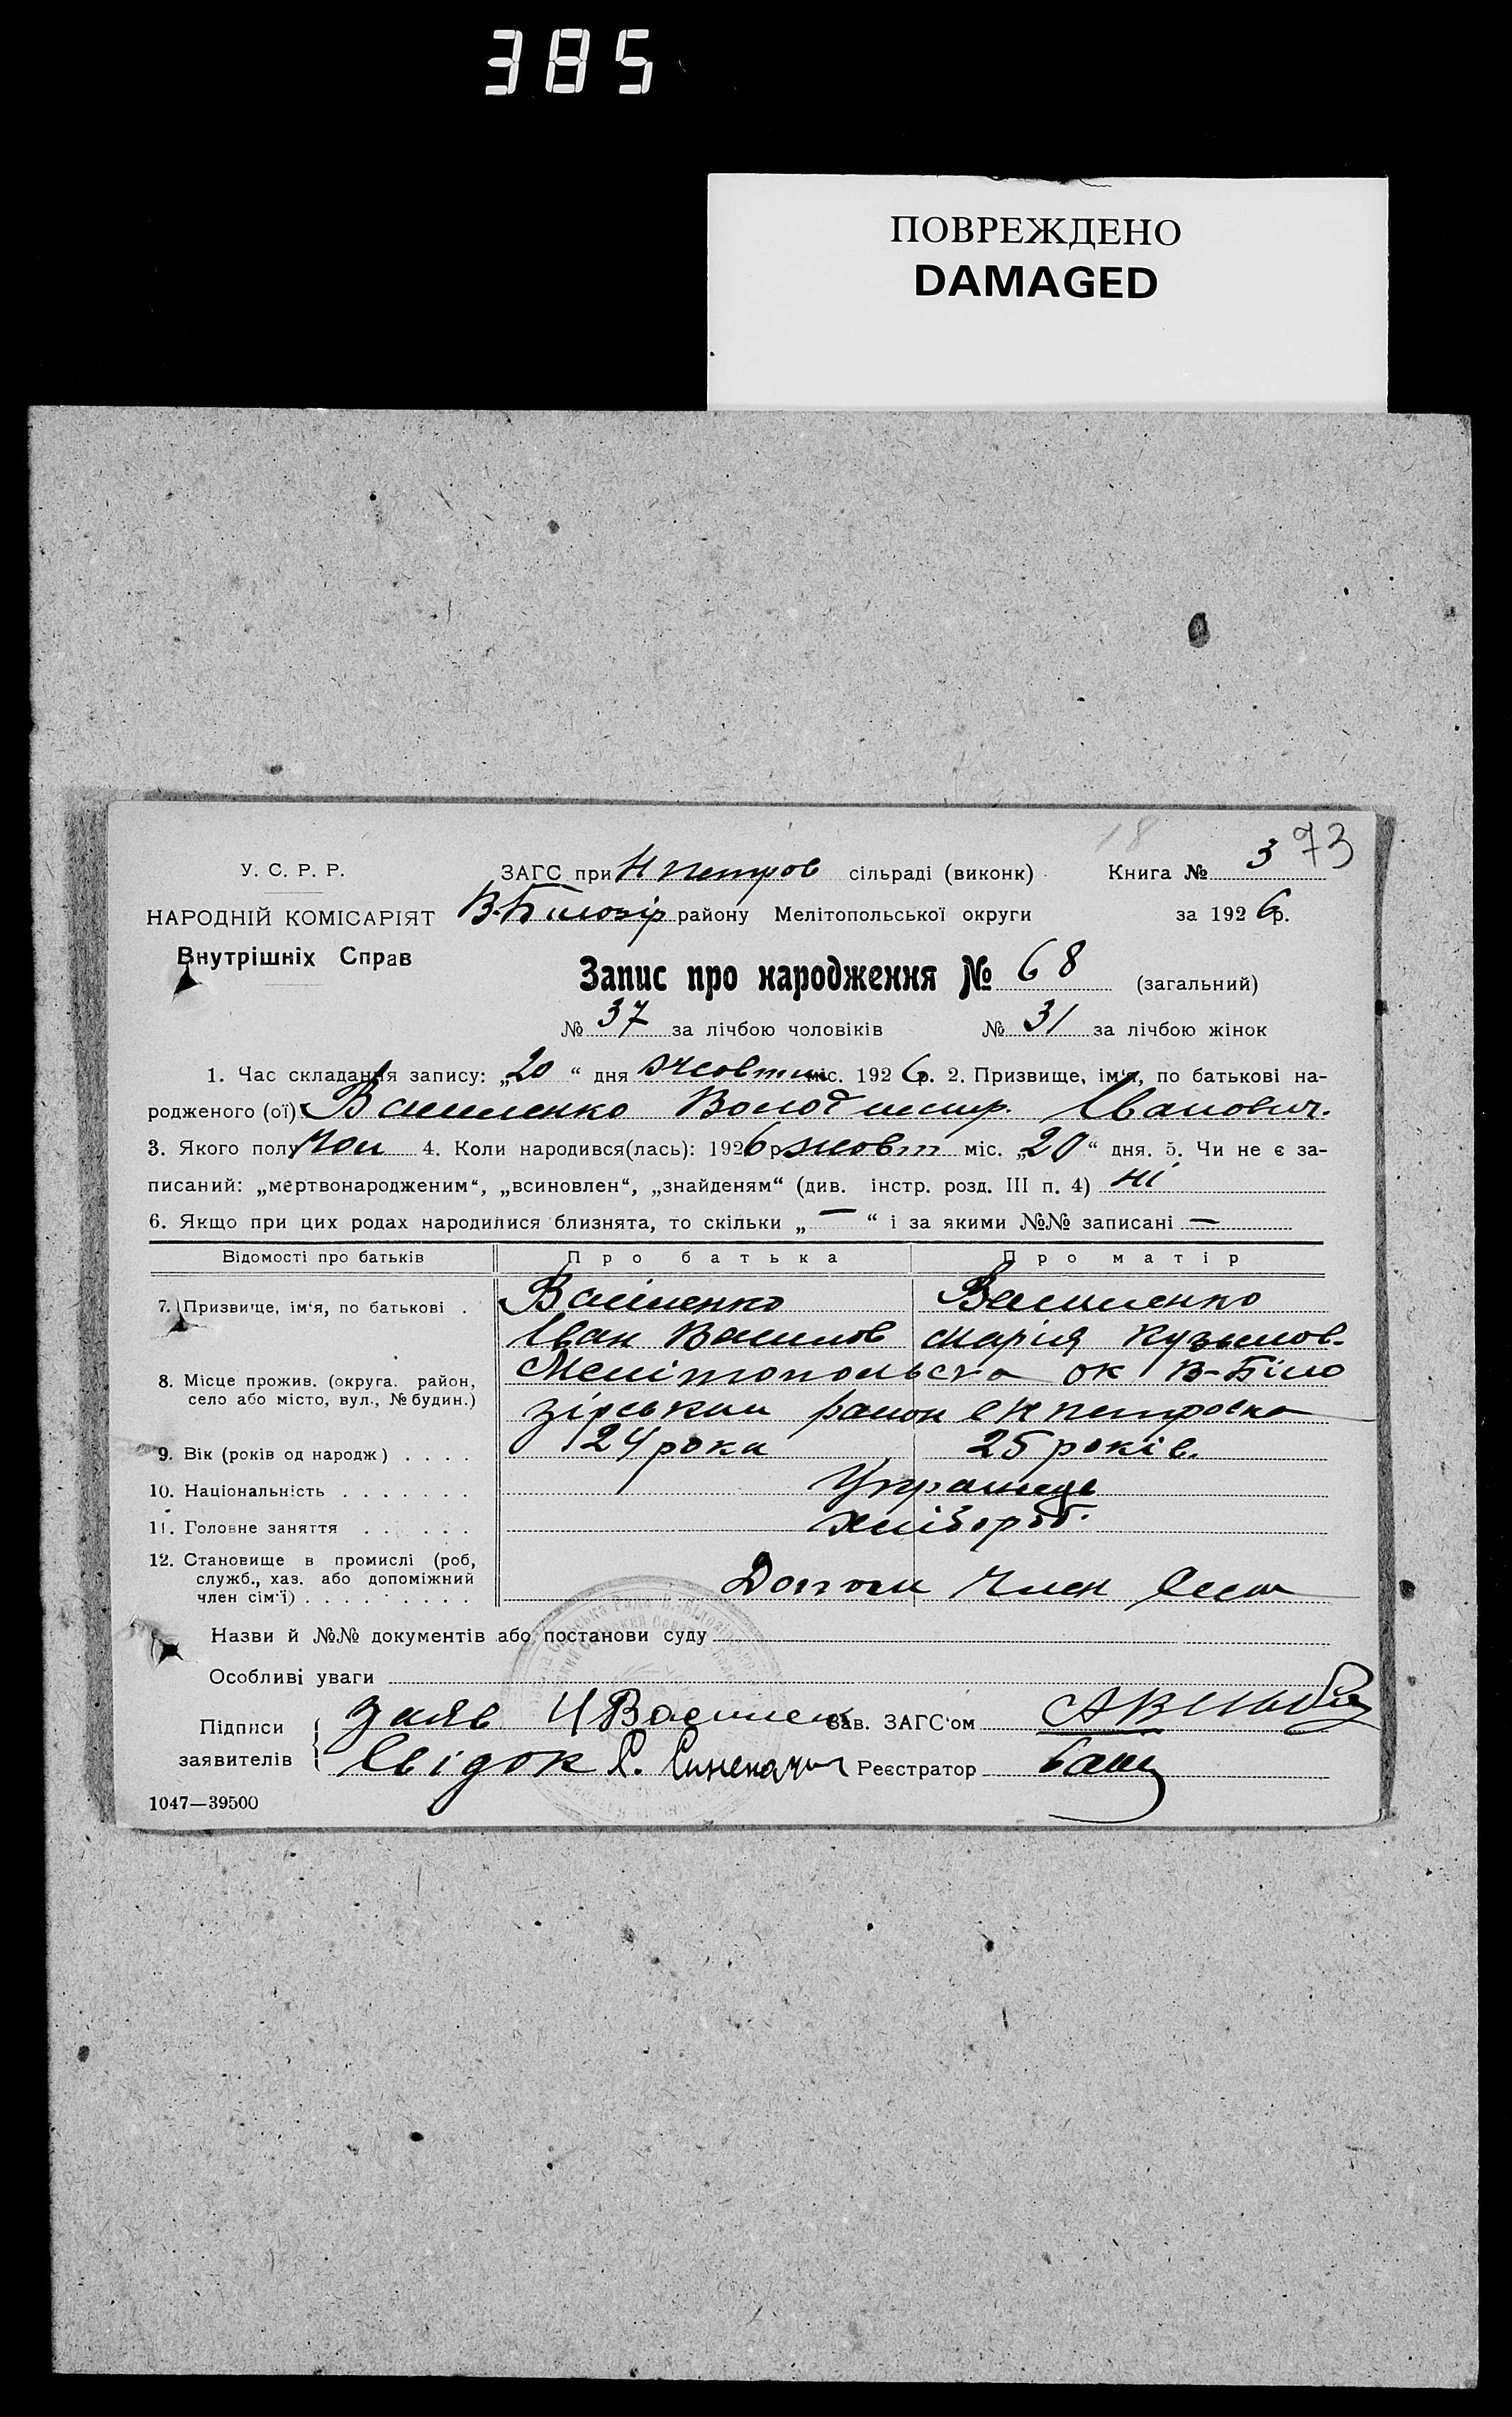 385
ПОВРЕЖДЕНО
DAMAGED
18 73
У. С. Р. Р. ЗАГС при Н петров сільраді (виконк) Книга № 3
НАРОДНІЙ КОМІСАРІЯТ В.-Білозір району Мелітопольської округи за 1926 р.
Внутрішніх Справ
Запис про народження № 68 (загальний)
№ 37 за лічбою чоловіків № 31 за лічбою жінок
1. Час складання запису: „20“ дня жовтня міс. 1926 р. 2. Призвище, ім‘я, по батькові на-
родженого (ої) Василенко Володимир Іванович.
3. Якого полу чол 4. Коли народився(лась): 1926 р. жовт міс. „20“ дня. 5. Чи не є за-
писаний: „мертвонародженим“, „всиновлен“, „знайденям“ (див. інстр. розд. III п. 4) ні
6. Якщо при цих родах народилися близнята, то скільки „—“ і за якими №№ записані —
Відомості про батьків Про батька Про матір
7. Призвище, ім‘я, по батькові . Василенко Василенко
Іван Василов Марія Кузьмов.
8. Місце прожив. (округа. район, село або місто, вул., № будин.) Мелітопольска ок В-Біло
зірський район с Н петровка
9. Вік (років од народж) . . . . 24 рока 25 років.
10. Національність . . . . . . . Українець
11. Головне заняття . . . . . . хлібороб.
12. Становище в промислі (роб, служб., хаз. або допоміжний член сім‘ї) . . . . . . . . . Допом член
Назви й №№ документів або постанови суду
Особливі уваги
Підписи заявителів { заяв І Василенк Зав. ЗАГС‘ом
Свідок С. Реєстратор
1047—39500